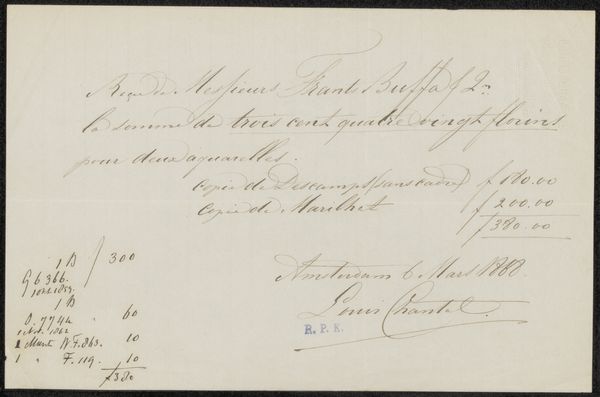 Reçu de Messieurs Frants Buffa & Zn
la somme de trois cent quatre vingt florins
pour deux aquarelles.
copie de Descamps (sans cadre) f 180.00
copie de Marilhet f 200.00
f 380.00
Amsterdam 6 Mars 1868.
Louis Chantal.
R. P. K.
1 B / 300
G 6366.
1 B
O. 7742 " 60
1 Munt W.F. 863. 10
1 " F. 119. 10
f 380